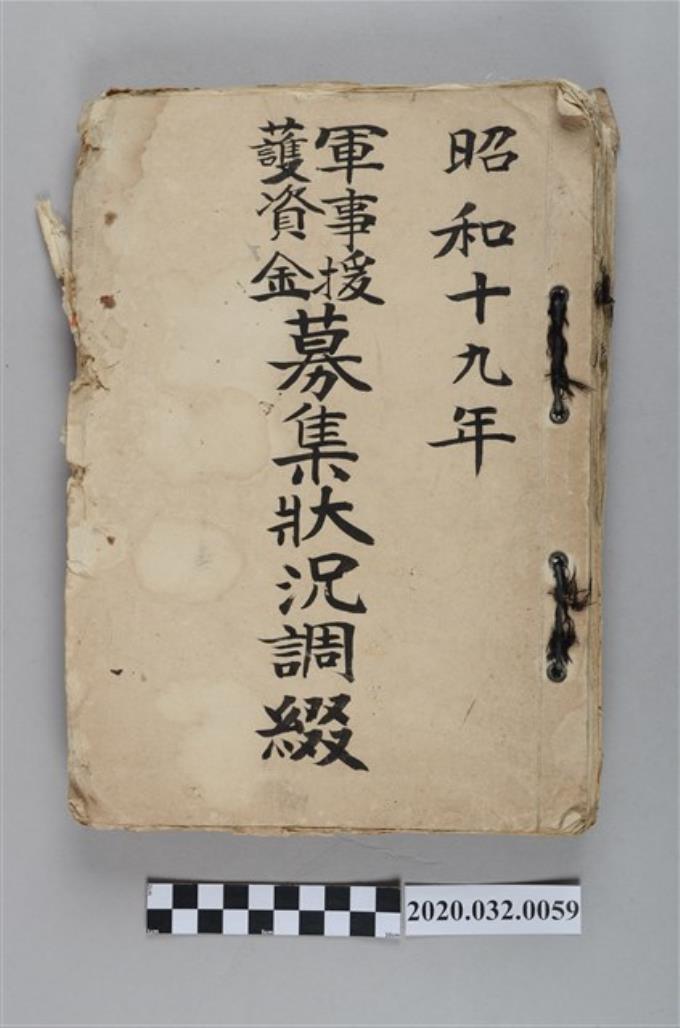 昭和十九年
軍事援
護資金
募集狀況調綴
2020.032.0059